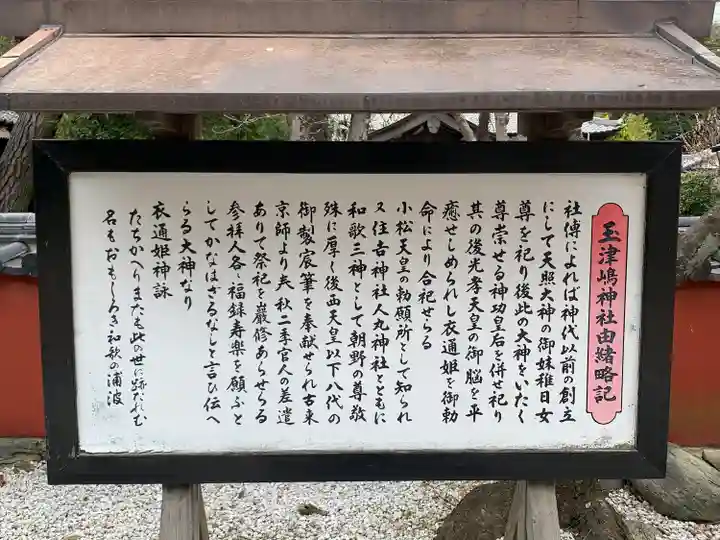 玉津嶋神社由緒略記
社傳によれば神代以前の創立
にして天照大神の御妹稚日女
尊を祀り後此の大神をいたく
尊崇せる神功皇后を併せ祀り
其の後光孝天皇の御脳を平
癒せしめられし衣通姫を御勅
命により合祀せらる
小松天皇の勅願所として知られ
又住吉神社人丸神社とともに
和歌三神として朝野の尊敬
殊に厚し後西天皇以下八代の
御製宸筆を奉献せられ古来
京師より春秋二季官人の差遣
ありて祭祀を嚴修あらせらる
参拝人各々福録寿楽を願ふと
してかなはざるなしと言ひ伝へ
らる大神なり
衣通姫神詠
たちかへりまたも此の世に跡たれむ
名もおもしろき和歌の浦波